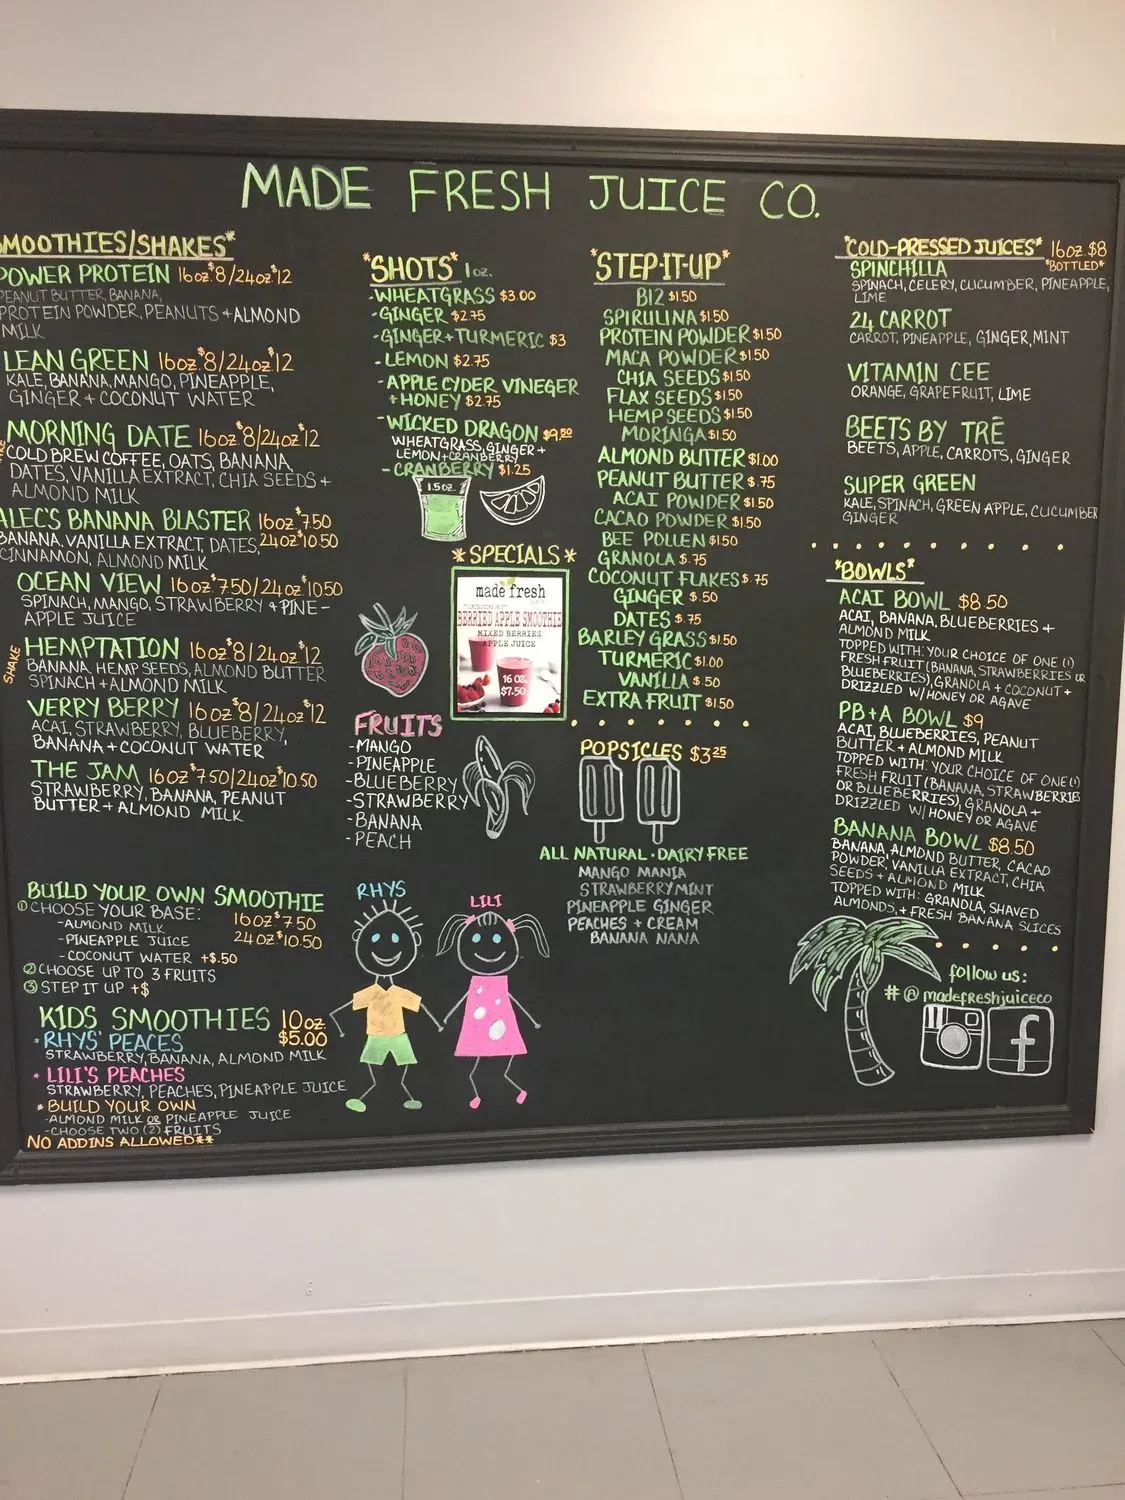 MADE FRESH JUICE CO.
SMOOTHIES/SHAKES*
POWER PROTEIN 16oz $8/24oz $12
PEANUT BUTTER, BANANA,
PROTEIN POWDER, PEANUTS + ALMOND
MILK
LEAN GREEN 16oz $8/24oz $12
KALE, BANANA, MANGO, PINEAPPLE,
GINGER + COCONUT WATER
MORNING DATE 16oz $8/24oz $12
COLD BREW COFFEE, OATS, BANANA,
DATES, VANILLA EXTRACT, CHIA SEEDS +
ALMOND MILK
ALEC'S BANANA BLASTER 16oz $7.50
BANANA, VANILLA EXTRACT, DATES, 24oz $10.50
CINNAMON, ALMOND MILK
OCEAN VIEW 16oz $7.50/24oz $10.50
SPINACH, MANGO, STRAWBERRY + PINE-
APPLE JUICE
SHAKE
HEMPTATION 16oz $8/24oz $12
BANANA, HEMP SEEDS, ALMOND BUTTER
SPINACH + ALMOND MILK
VERRY BERRY 16oz $8/24oz $12
ACAI, STRAWBERRY, BLUEBERRY,
BANANA + COCONUT WATER
THE JAM 16oz $7.50/24oz $10.50
STRAWBERRY, BANANA, PEANUT
BUTTER + ALMOND MILK
BUILD YOUR OWN SMOOTHIE
① CHOOSE YOUR BASE: 16oz $7.50
-ALMOND MILK 24oz $10.50
-PINEAPPLE JUICE
-COCONUT WATER +$.50
② CHOOSE UP TO 3 FRUITS
③ STEP IT UP +$
KIDS SMOOTHIES 10oz
$5.00
*RHYS' PEACES
STRAWBERRY, BANANA, ALMOND MILK
* LILI'S PEACHES
STRAWBERRY, PEACHES, PINEAPPLE JUICE
*BUILD YOUR OWN
-ALMOND MILK OR PINEAPPLE JUICE
-CHOOSE TWO (2) FRUITS
NO ADDINS ALLOWED**
*SHOTS* 1oz.
-WHEATGRASS $3.00
-GINGER $2.75
-GINGER+TURMERIC $3
-LEMON $2.75
-APPLE CYDER VINEGER
+ HONEY $2.75
-WICKED DRAGON $9.50
WHEATGRASS, GINGER +
LEMON+CRANBERRY
-CRANBERRY $1.25
1.5oz.
*SPECIALS*
made fresh
BERRIED APPLE SMOOTHIE
MIXED BERRIES
APPLE JUICE
16 OZ.
$7.50
FRUITS
-MANGO
-PINEAPPLE
-BLUEBERRY
-STRAWBERRY
-BANANA
-PEACH
RHYS
LILI
*STEP-IT-UP*
B12 $1.50
SPIRULINA $1.50
PROTEIN POWDER $1.50
MACA POWDER $1.50
CHIA SEEDS $1.50
FLAX SEEDS $1.50
HEMP SEEDS $1.50
MORINGA $1.50
ALMOND BUTTER $1.00
PEANUT BUTTER $.75
ACAI POWDER $1.50
CACAO POWDER $1.50
BEE POLLEN $1.50
GRANOLA $.75
COCONUT FLAKES $.75
GINGER $.50
DATES $.75
BARLEY GRASS $1.50
TURMERIC $1.00
VANILLA $.50
EXTRA FRUIT $1.50
POPSICLES $3.25
ALL NATURAL · DAIRY FREE
MANGO MANIA
STRAWBERRY MINT
PINEAPPLE GINGER
PEACHES + CREAM
BANANA NANA
*COLD-PRESSED JUICES* 16oz $8
*BOTTLED*
SPINCHILLA
SPINACH, CELERY, CUCUMBER, PINEAPPLE,
LIME
24 CARROT
CARROT, PINEAPPLE, GINGER, MINT
VITAMIN CEE
ORANGE, GRAPEFRUIT, LIME
BEETS BY TRĒ
BEETS, APPLE, CARROTS, GINGER
SUPER GREEN
KALE, SPINACH, GREEN APPLE, CUCUMBER
GINGER
*BOWLS*
ACAI BOWL $8.50
ACAI, BANANA, BLUEBERRIES +
ALMOND MILK
TOPPED WITH: YOUR CHOICE OF ONE (1)
FRESH FRUIT (BANANA, STRAWBERRIES OR
BLUEBERRIES), GRANOLA + COCONUT +
DRIZZLED W/HONEY OR AGAVE
PB+A BOWL $9
ACAI, BLUEBERRIES, PEANUT
BUTTER + ALMOND MILK
TOPPED WITH: YOUR CHOICE OF ONE (1)
FRESH FRUIT (BANANA, STRAWBERRIES
OR BLUEBERRIES), GRANOLA +
DRIZZLED W/ HONEY OR AGAVE
BANANA BOWL $8.50
BANANA, ALMOND BUTTER, CACAO
POWDER, VANILLA EXTRACT, CHIA
SEEDS + ALMOND MILK
TOPPED WITH: GRANOLA, SHAVED
ALMONDS, + FRESH BANANA SLICES
follow us:
#@madefreshjuiceco
f